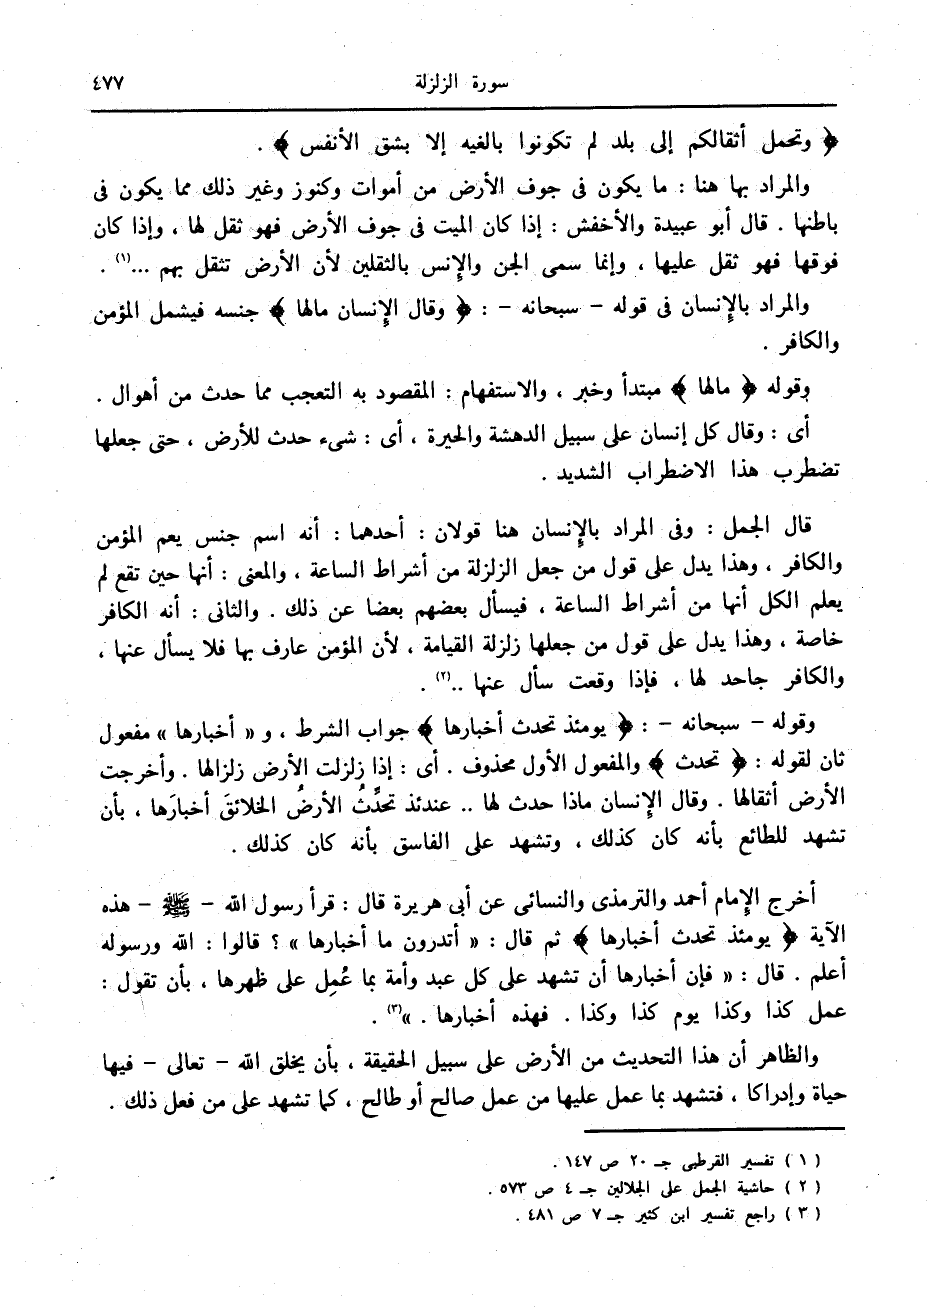 سورة الزلزلة ٤٧٧
﴿ وتحمل أثقالكم إلى بلد لم تكونوا بالغيه إلا بشق الأنفس ﴾ .
والمراد بها هنا : ما يكون فى جوف الأرض من أموات وكنوز وغير ذلك مما يكون فى
باطنها . قال أبو عبيدة والأخفش : إذا كان الميت فى جوف الأرض فهو ثقل لها ، وإذا كان
فوقها فهو ثقل عليها ، وإنما سمى الجن والإنس بالثقلين لأن الأرض تثقل بهم ...(١) .
والمراد بالإنسان فى قوله - سبحانه - : ﴿ وقال الإنسان مالها ﴾ جنسه فيشمل المؤمن
والكافر .
وقوله ﴿ مالها ﴾ مبتدأ وخبر ، والاستفهام : المقصود به التعجب مما حدث من أهوال .
أى : وقال كل إنسان على سبيل الدهشة والحيرة ، أى : شىء حدث للأرض ، حتى جعلها
تضطرب هذا الاضطراب الشديد .
قال الجمل : وفى المراد بالإنسان هنا قولان : أحدهما : أنه اسم جنس يعم المؤمن
والكافر ، وهذا يدل على قول من جعل الزلزلة من أشراط الساعة ، والمعنى : أنها حين تقع لم
يعلم الكل أنها من أشراط الساعة ، فيسأل بعضهم بعضا عن ذلك . والثانى : أنه الكافر
خاصة ، وهذا يدل على قول من جعلها زلزلة القيامة ، لأن المؤمن عارف بها فلا يسأل عنها ،
والكافر جاحد لها ، فإذا وقعت سأل عنها ..(٢) .
وقوله - سبحانه - : ﴿ يومئذ تحدث أخبارها ﴾ جواب الشرط ، و « أخبارها » مفعول
ثان لقوله : ﴿ تحدث ﴾ والمفعول الأول محذوف . أى : إذا زلزلت الأرض زلزالها . وأخرجت
الأرض أثقالها . وقال الإنسان ماذا حدث لها .. عندئذ تحدِّثُ الأرضُ الخلائقَ أخبارَها ، بأن
تشهد للطائع بأنه كان كذلك ، وتشهد على الفاسق بأنه كان كذلك .
أخرج الإمام أحمد والترمذى والنسائى عن أبى هريرة قال : قرأ رسول الله - ﷺ - هذه
الآية ﴿ يومئذ تحدث أخبارها ﴾ ثم قال : « أتدرون ما أخبارها » ؟ قالوا : الله ورسوله
أعلم . قال : « فإن أخبارها أن تشهد على كل عبد وأمة بما عُمِل على ظهرها ، بأن تقول :
عمل كذا وكذا يوم كذا وكذا . فهذه أخبارها . »(٣) .
والظاهر أن هذا التحديث من الأرض على سبيل الحقيقة ، بأن يخلق الله - تعالى - فيها
حياة وإدراكا ، فتشهد بما عمل عليها من عمل صالح أو طالح ، كما تشهد على من فعل ذلك .
( ١ ) تفسير القرطبى جـ ٢٠ ص ١٤٧ .
( ٢ ) حاشية الجمل على الجلالين جـ ٤ ص ٥٧٣ .
( ٣ ) راجع تفسير ابن كثير جـ ٧ ص ٤٨١ .